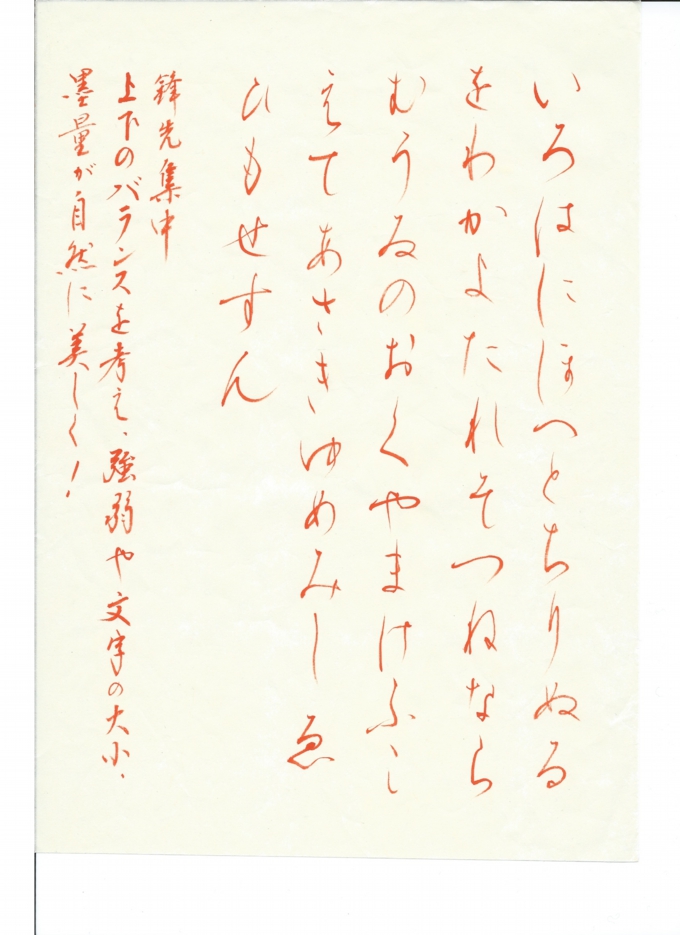 いろはにほへとちりぬる
をわかよたれそつねなら
むうゐのおくやまけふこ
えてあさきゆめみしゑ
ひもせすん
鋒先集中
上下のバランスを考え、強弱や文字の大小、
墨量が自然に美しく!